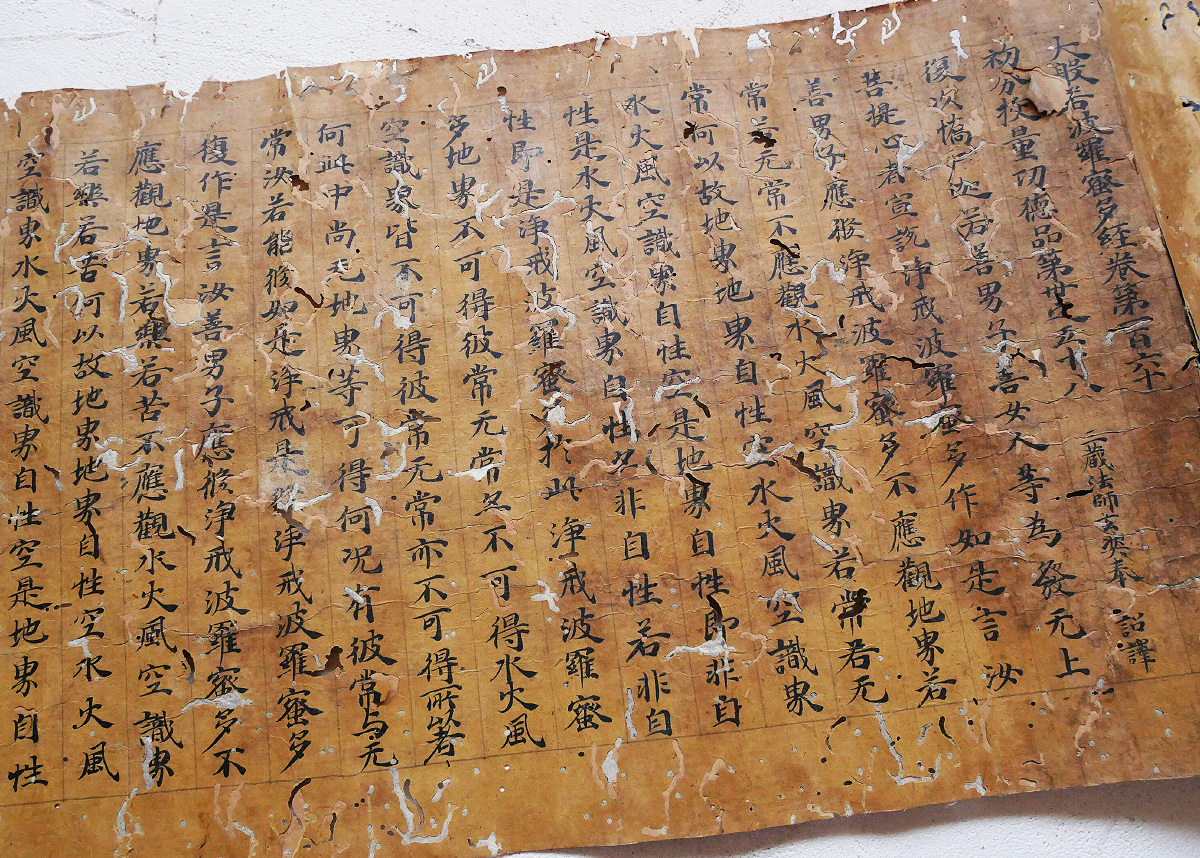 大般若波羅蜜多經卷第一百六十
三蔵法師玄奘奉 詔譯
初分挍量功德品第卅之五十八
復次憍尸迦若善男子善女人等為發无上
菩提心者宣說淨戒波羅蜜多作如是言汝
善男子應修淨戒波羅蜜多不應觀地界若
常若无常不應觀水火風空識界若常若无
常何以故地界地界自性空水火風空識界
水火風空識界自性空是地界自性即非自
性是水火風空識界自性亦非自性若非自
性即是淨戒波羅蜜多於此淨戒波羅蜜
多地界不可得彼常无常亦不可得水火風
空識界皆不可得彼常无常亦不可得所以者
何此中尚无地界等可得何況有彼常与无
常汝若能修如是淨戒是修淨戒波羅蜜多
復作是言汝善男子應修淨戒波羅蜜多不
應觀地界若樂若苦不應觀水火風空識界
若樂若苦何以故地界地界自性空水火風
空識界水火風空識界自性空是地界自性